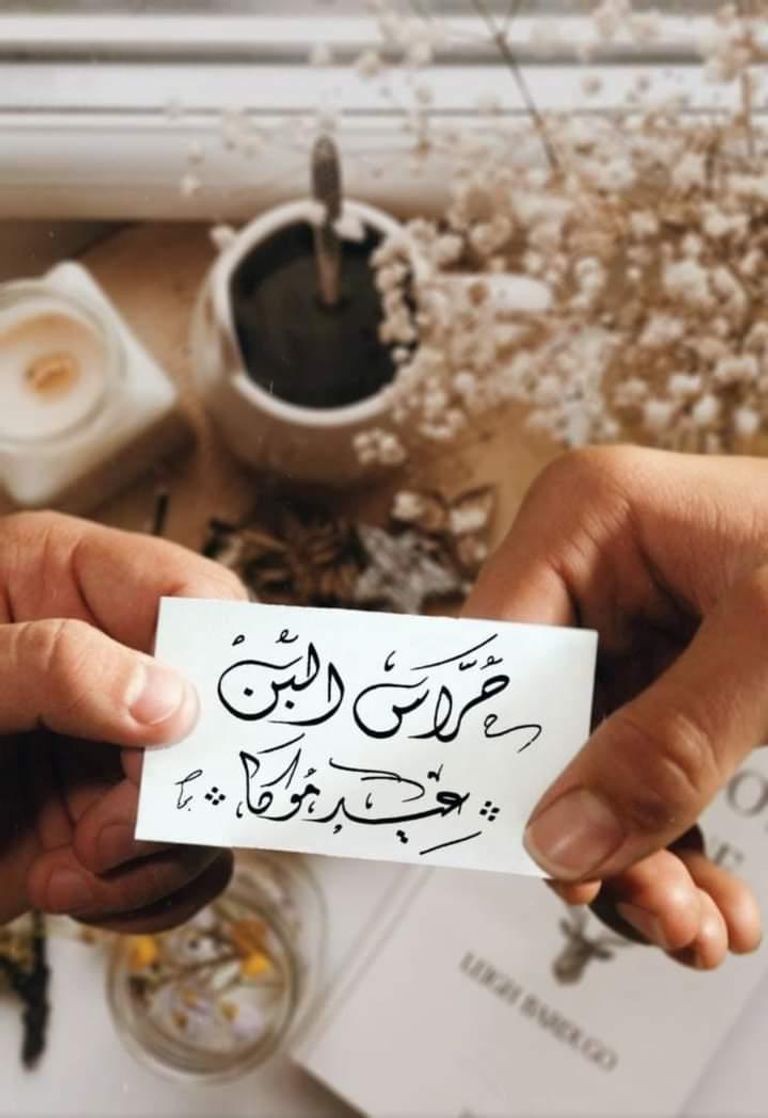 حُرَّاسَ البُنّ
عِيد مُوكَا
LEIGH BARDUGO